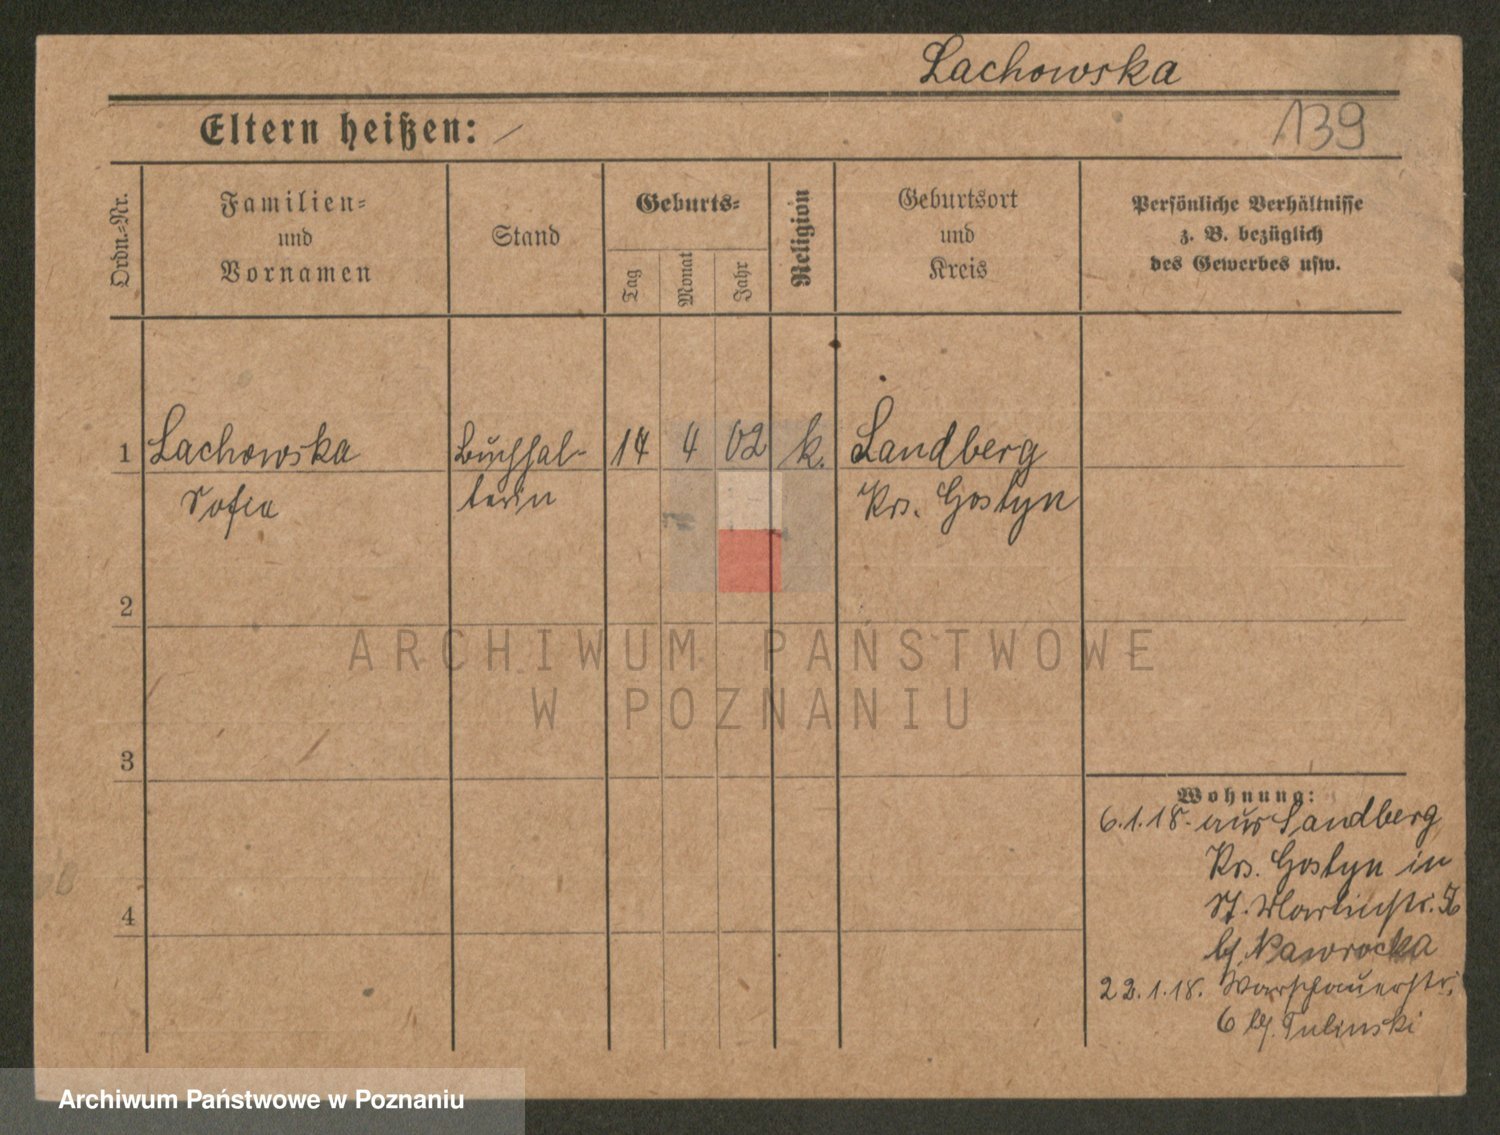 Lachowska
139
Eltern heißen:
Ordn.=Nr.
Familien=
und
Vornamen
Stand
Geburts=
Tag
Monat
Jahr
Religion
Geburtsort
und
Kreis
Persönliche Verhältnisse
z. B. bezüglich
des Gewerbes usw.
1 Lachowska Buchhal- 14 4 02 k. Landberg
Sofia terin Krs. Gostyn
2
ARCHIWUM PAŃSTWOWE
W POZNANIU
3
Wohnung:
6.1.18. aus Landberg
Krs. Gostyn in
4
St. Martinstr.
b/ Nawrocka
22.1.18. Warschauerstr.
6 b/ Tulinski
Archiwum Państwowe w Poznaniu